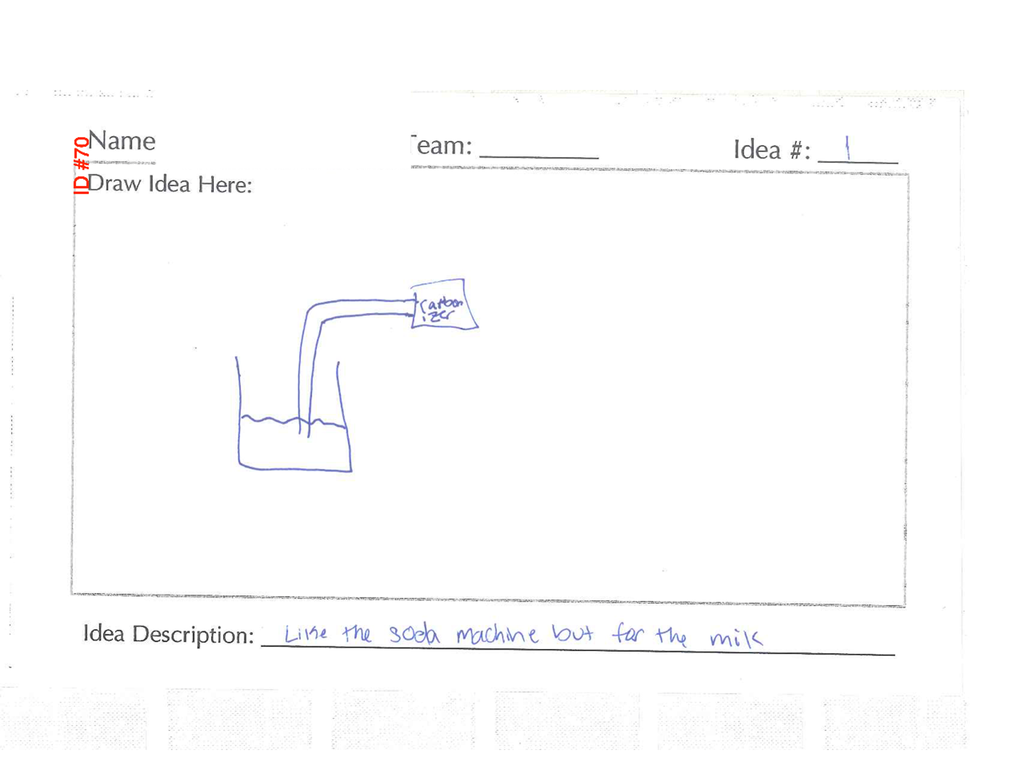 ID #70
Name
Team: Idea #: 1
Draw Idea Here:
carbon
izer
Idea Description: Like the soda machine but for the milk